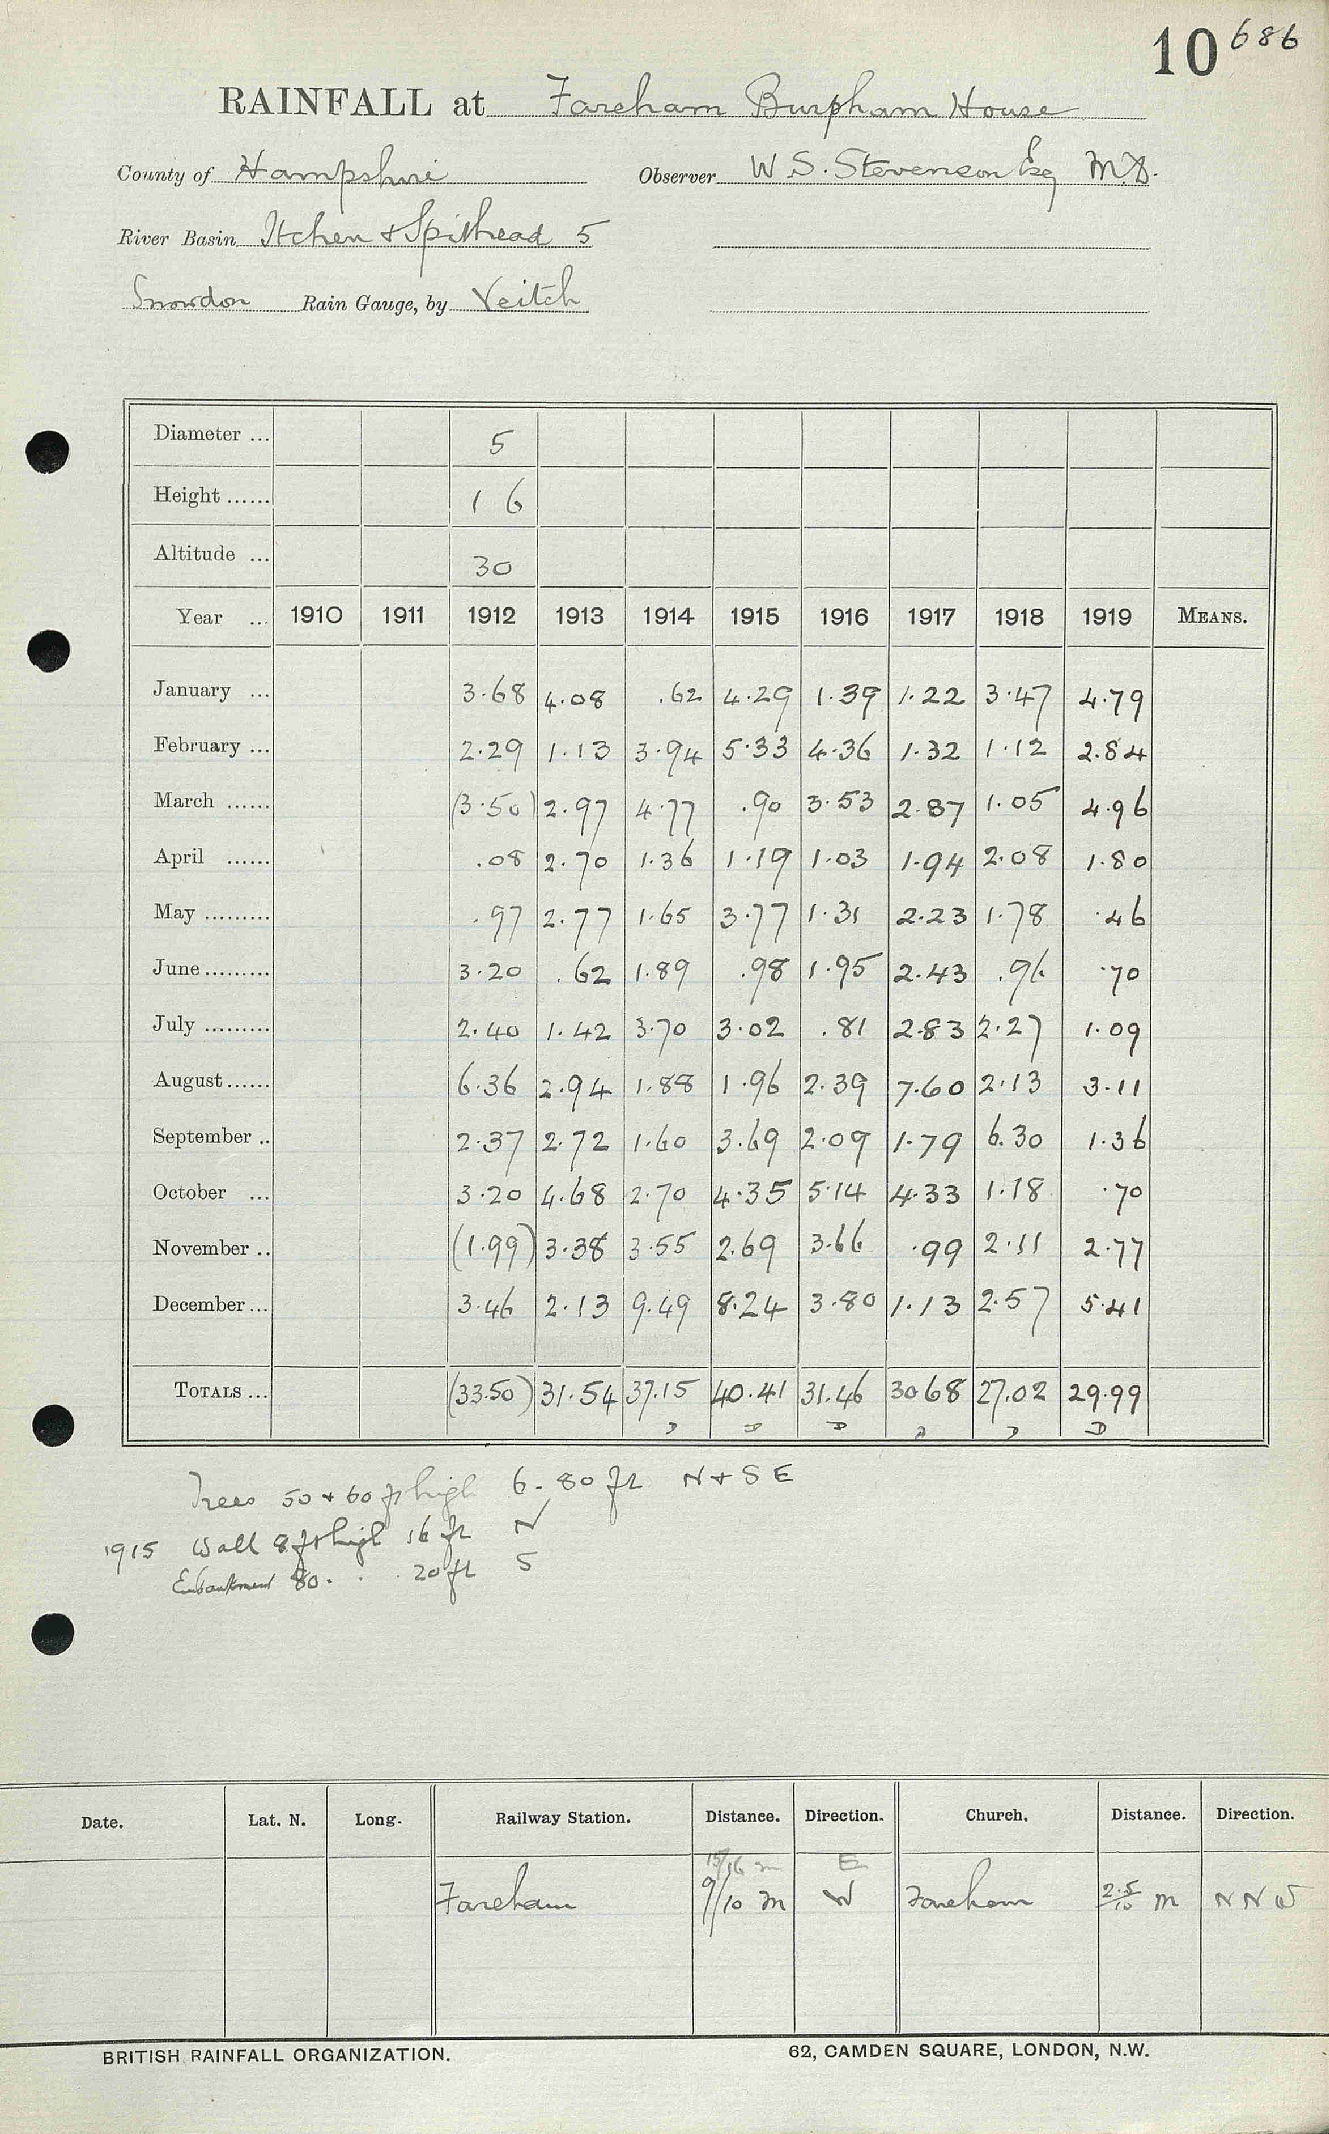 10 686
RAINFALL at Fareham Burpham House
County of Hampshire Observer W. S. Stevenson Esq M.D.
River Basin Itchen & Spithead 5
Snowdon Rain Gauge, by Veitch
Diameter ... 5
Height ...... 1 6
Altitude ... 30
Year ... 1910 1911 1912 1913 1914 1915 1916 1917 1918 1919 MEANS.
January ... 3.68 4.08 .62 4.29 1.39 1.22 3.47 4.79
February ... 2.29 1.13 3.94 5.33 4.36 1.32 1.12 2.84
March ...... (3.50) 2.97 4.77 .90 3.53 2.87 1.05 4.96
April ...... .08 2.70 1.36 1.19 1.03 1.94 2.08 1.80
May ......... .97 2.77 1.65 3.77 1.31 2.23 1.78 .46
June ......... 3.20 .62 1.89 .98 1.95 2.43 .96 .70
July ......... 2.40 1.42 3.70 3.02 .81 2.83 2.27 1.09
August ...... 6.36 2.94 1.88 1.96 2.39 7.60 2.13 3.11
September .. 2.37 2.72 1.60 3.69 2.09 1.79 6.30 1.36
October ... 3.20 4.68 2.70 4.35 5.14 4.33 1.18 .70
November .. (1.99) 3.38 3.55 2.69 3.66 .99 2.11 2.77
December ... 3.46 2.13 9.49 8.24 3.80 1.13 2.57 5.41
TOTALS ... (33.50) 31.54 37.15 40.41 31.46 30 68 27.02 29.99
D D D D D D
Trees 50 + 60 ft high 6 - 80 ft N + S E
1915 Wall 8 ft high 16 ft N
Embankment 80 . . 20 ft S
Date. Lat. N. Long. Railway Station. Distance. Direction. Church. Distance. Direction.
15/16 m E
Fareham 9/10 m W Fareham 2.5/10 m N N W
BRITISH RAINFALL ORGANIZATION. 62, CAMDEN SQUARE, LONDON, N.W.